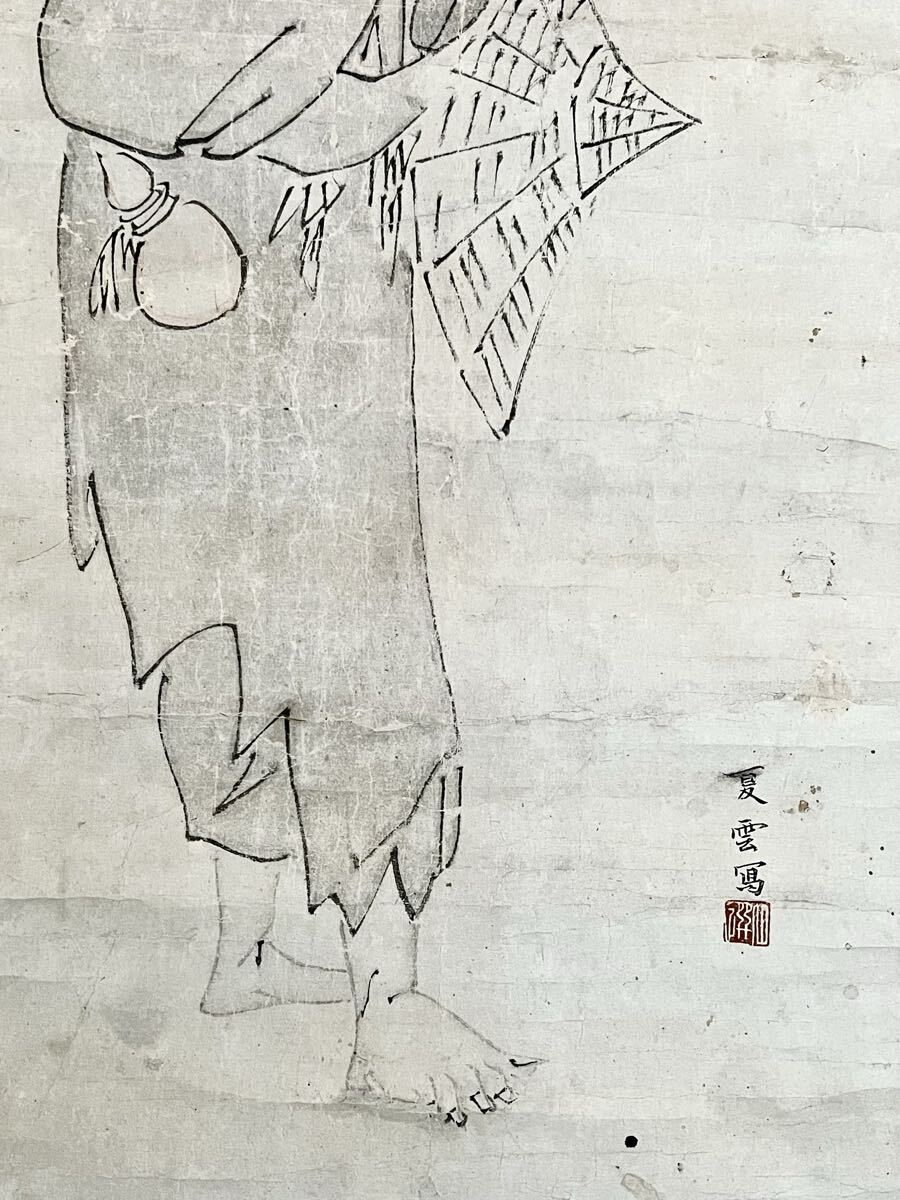 夏雲寫